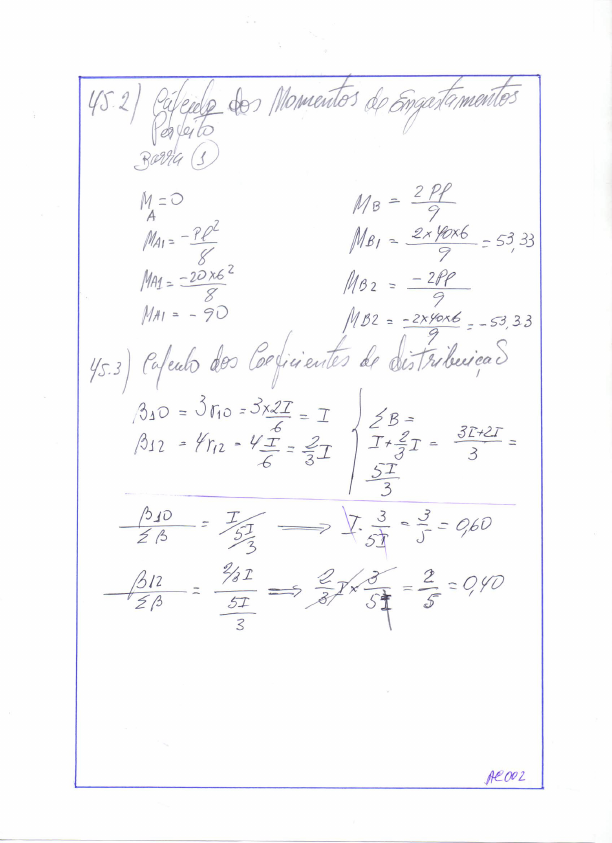 45.2) Cálculo dos Momentos de Engastamentos
Perfeito
Barra 1
M = 0
A
MA1 = -Pl²/8
MA1 = -20x6²/8
MA1 = -90
MB = 2Pl/9
MB1 = 2x40x6/9 = 53,33
MB2 = -2Pl/9
MB2 = -2x40x6/9 = -53,33
45.3) Calculo dos Coeficientes de distribuiçaõ
β10 = 3r10 = 3x2I/6 = I
β12 = 4r12 = 4I/6 = 2/3 I
ΣB =
I + 2/3 I = 3I+2I/3 =
5I/3
β10/Σβ = I/(5I/3) ⟹ I. 3/5I = 3/5 = 0,60
β12/Σβ = (2/3I)/(5I/3) ⟹ 2/3 I x 3/5I = 2/5 = 0,40
AC002